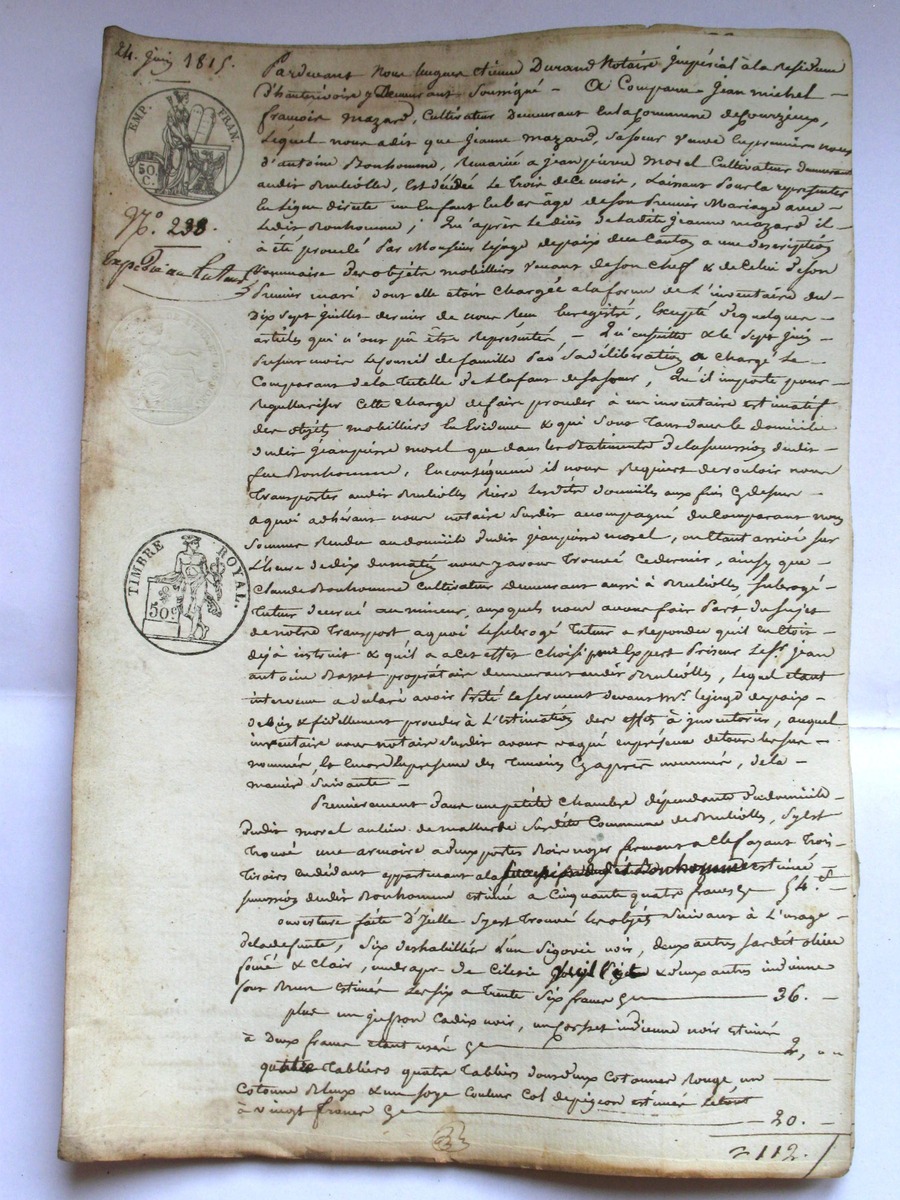 24. juin 1815.
EMP. FRAN.
50. C.
N.° 238.
Expédié au tuteur
TIMBRE ROYAL.
50c
Pardevant Nous hugues etienne Durand Notaire Impérial à la Residence
d'hauterivoire y Demeurant Soussigné - A Comparu Jean michel -
francois mazard, Cultivateur Demeurant en la Commune de
Lequel nous a dit que Jeanne mazard, sa soeur veuve en premiere noces
d'antoine Bonhomme, Remarié a jean pierre morel Cultivateur demeurant
audit Brulliolles, Est décédée Le trois de ce mois, Laissant pour la représenter
En Ligne directe un Enfant en bas-âge de son premier Mariage avec -
Ledit Bonhomme; Qu'après Le décès de Ladite jeanne mazard il -
à été procédé Par Monsieur Le juge de paix du Canton a une description
sommaire des objets mobilliers venant de son Chef & de Celui de son
Premier mari dont elle étoit Chargée a la forme de L'inventaire du -
Dix Sept juillet dernier de nous Reçu Enregistré, Excepté de quelques -
articles qui n'ont pû être Représenté, - Qu'ensuitte & le Sept juin -
présent mois Le Conseil de famille Par sa délibération a Chargé Le
Comparant de la Tutelle de L'Enfant de sa soeur, Qu'il importe pour -
Régullariser Cette Charge de faire procéder à un inventaire estimatif
des objets mobilliers En Evidence & qui sont Tant dans le domicile
dudit jean pierre morel que dans les Batiments de la succession dudit -
feu Bonhomme, En conséquence il nous Requiert de vouloir nous
Transporter audit Brulliolles domiciles aux fins Cy dessus -
a quoi adhérant nous notaire Susdit accompagné du Comparant nous
sommes Rendu au domicile dudit jean pierre morel, ou Etant arrivé sur
L'heure de dix du matin nous y avons Trouvé Ce dernier, ainsy que -
Claude Bonhomme Cultivateur demeurant aussi à Brulliolles, subrogé -
Tuteur décerné au mineur, auxquels nous avons fait Part du sujet
de notre Transport a quoi Le subrogé Tuteur a répondu qu'il en étoit -
déjà instruit & qu'il a a cet effet Choisi pour Expert Priseur Le Sr. jean
antoine Basset propriétaire demeurant audit Brulliolles, Lequel étant
intervenu a déclaré avoir Prêté Le serment devant Mr. Le juge de paix -
de bien & fidellement procéder à L'Estimation des effets à inventorier, auquel
inventaire nous notaire susdit avons vaqué en présence de tous les sus -
nommés, Et Encore En présence des Temoins Cy après nommés, de la -
maniere suivante -
Premierement dans une petite Chambre dépendante du domicile
dudit morel au lieu de susdite Commune de Brulliolles, s'y est
Trouvé une armoire a deux portes Bois noyer fermant a Clef ayant Trois
Tiroirs en dedans appartenant a la
succession dudit Bonhomme estimé a Cinquante quatre francs Cy 54.
ouverture faite d'Icelle s'y est Trouvé les objets suivants à L'usage -
de la defunte, Six deshabilliés d'un Ségovie noir, deux autres
foncé & Clair, un drap de Cilesie & deux autres indienne
fond Brun estimés Les six a Trente Six francs Cy 36.
plus un juppon Cadix noir, un Corset indienne noir estimé
à Deux francs étant usés Cy 2,
quatre Tabliers dont deux Cotonnes Rouge un
Cotonne Bleux & un soye Couleur Col de pigeon estimés Le tout
à vingt francs Cy 20.
112.